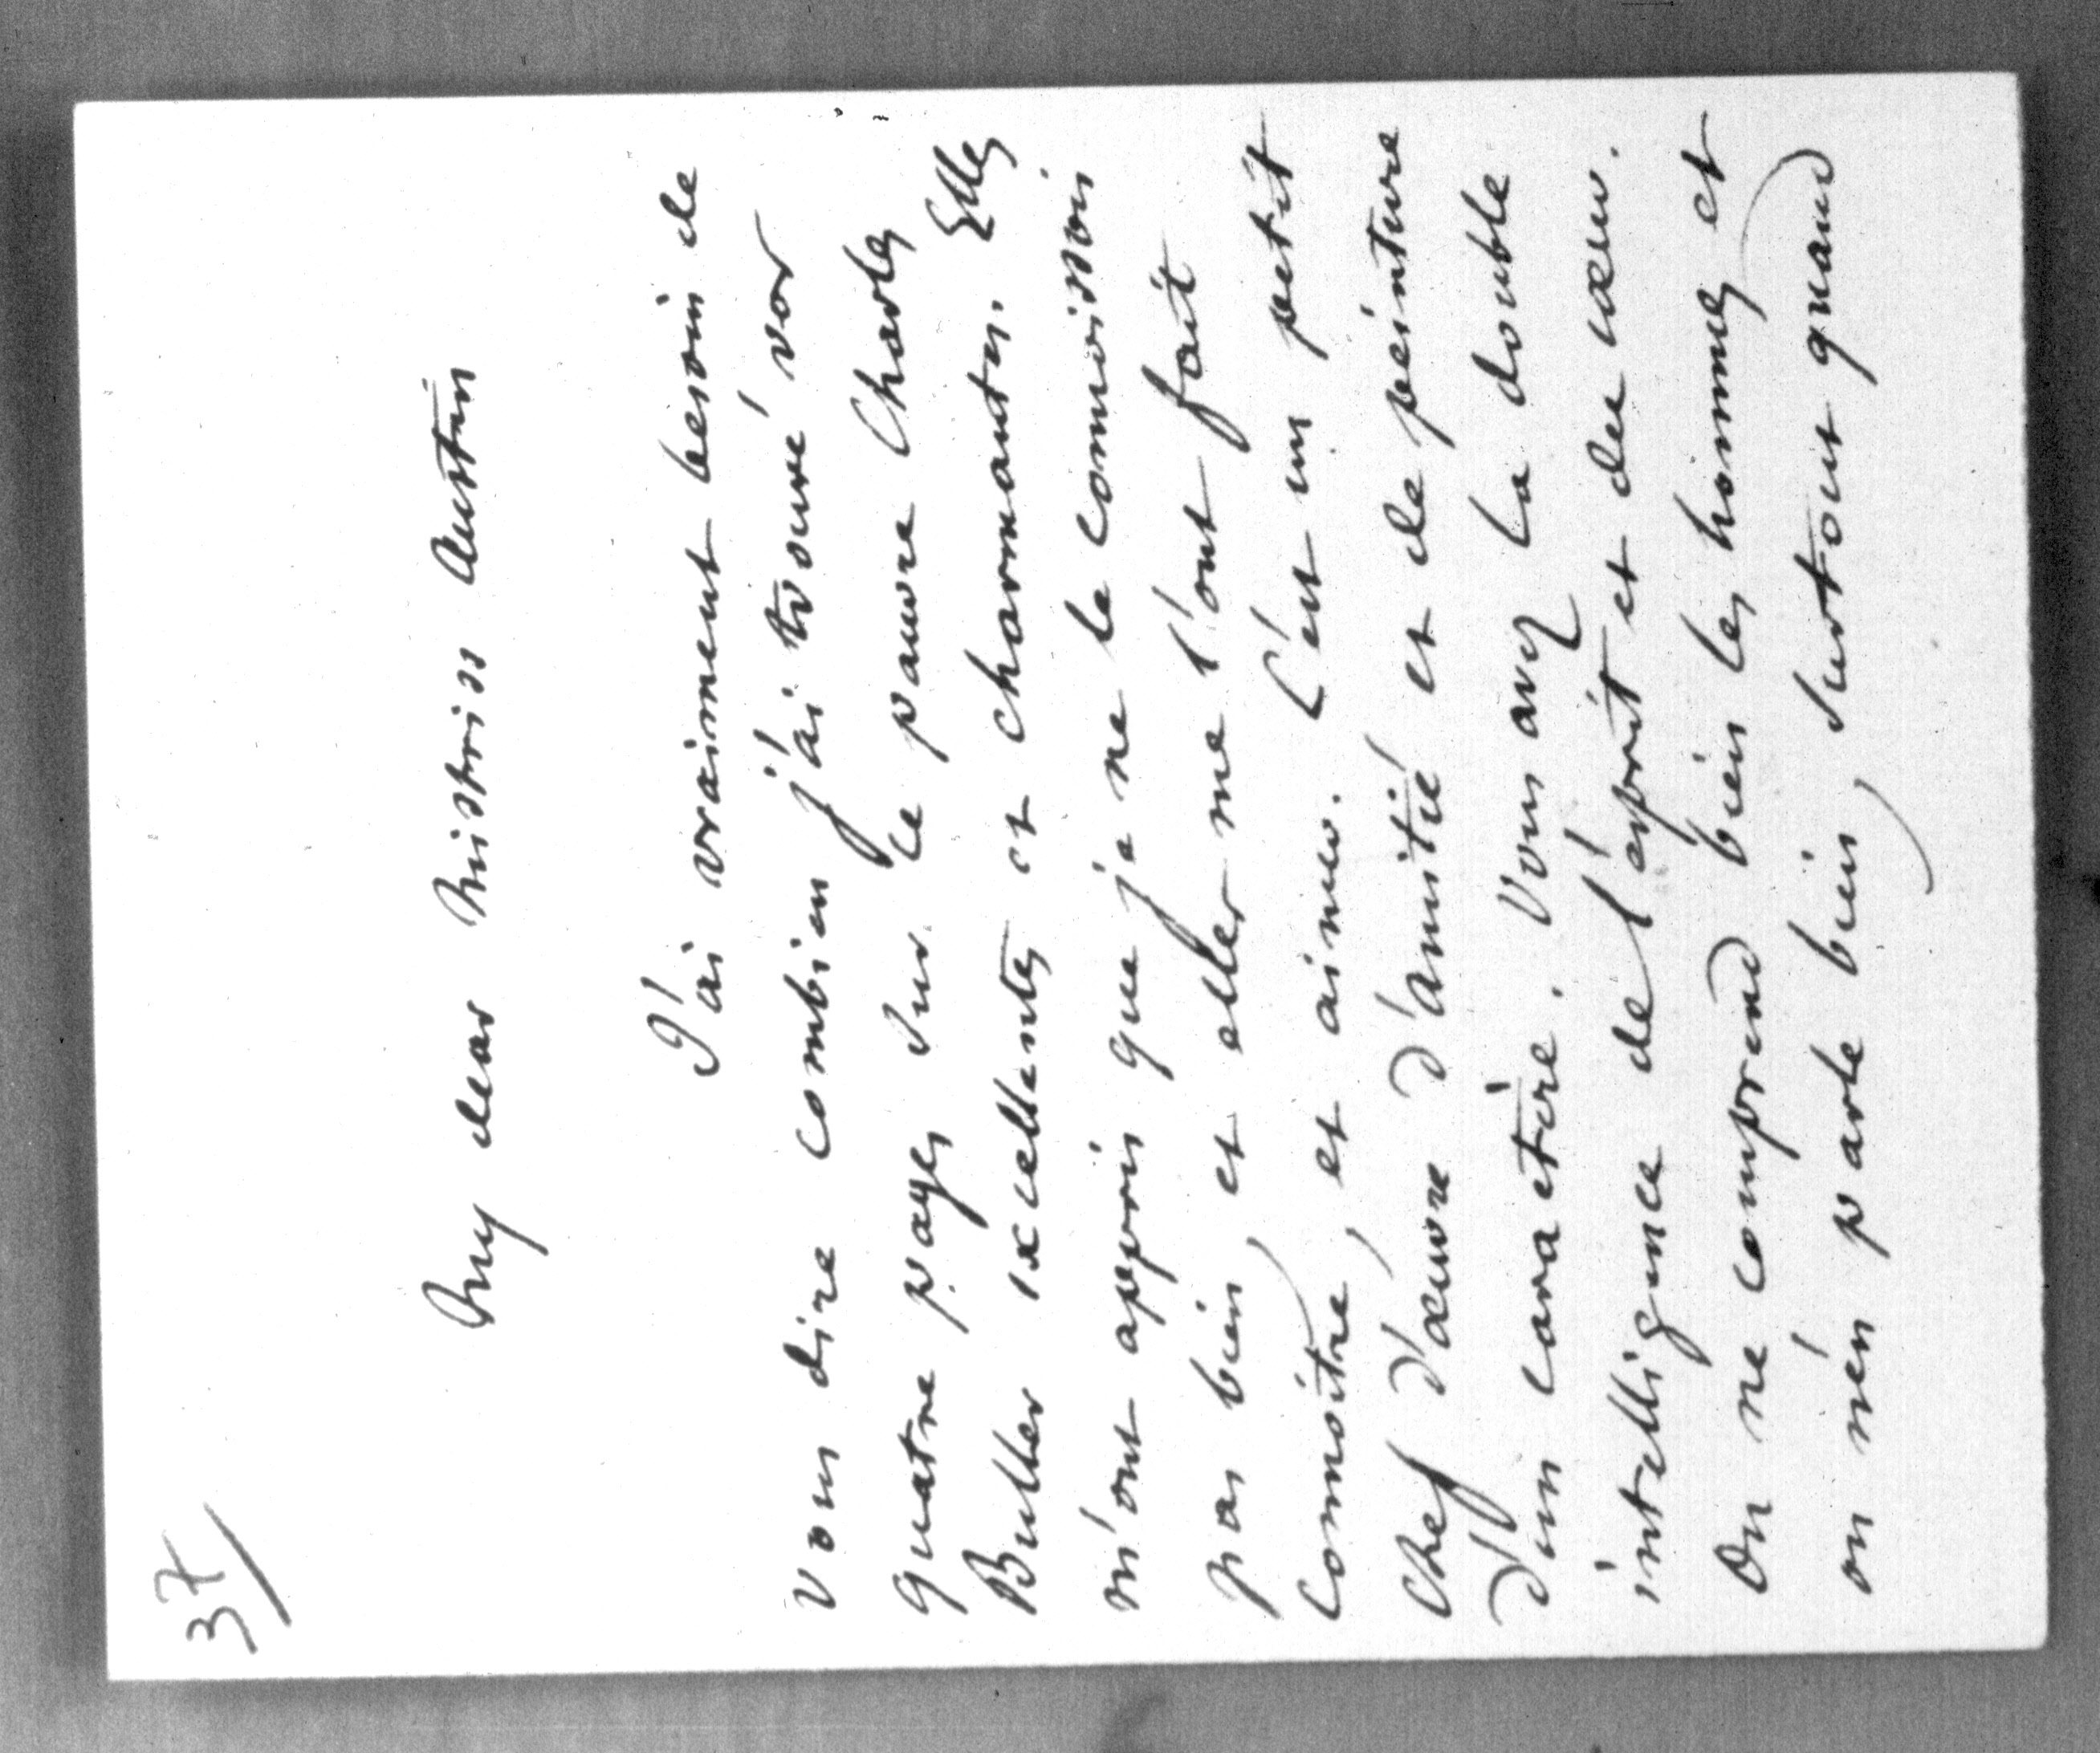 37
My dear Mistriss Austin
J'ai vraiment besoin de
vous dire combien j'ai trouvé vos
quatre pages sur ce pauvre Charles
Buller excellentes et charmantes. Elles
m'ont appris que je ne le connoissois
pas bien, et elles me l'ont fait
connoître, et aimer. C'est un petit
chef d'œuvre d'amitié et de peinture
d'un caractère. Vous avez la double
intelligence de l'esprit et du cœur.
On ne comprend bien les hommes et
on n'en parle bien, surtout quand